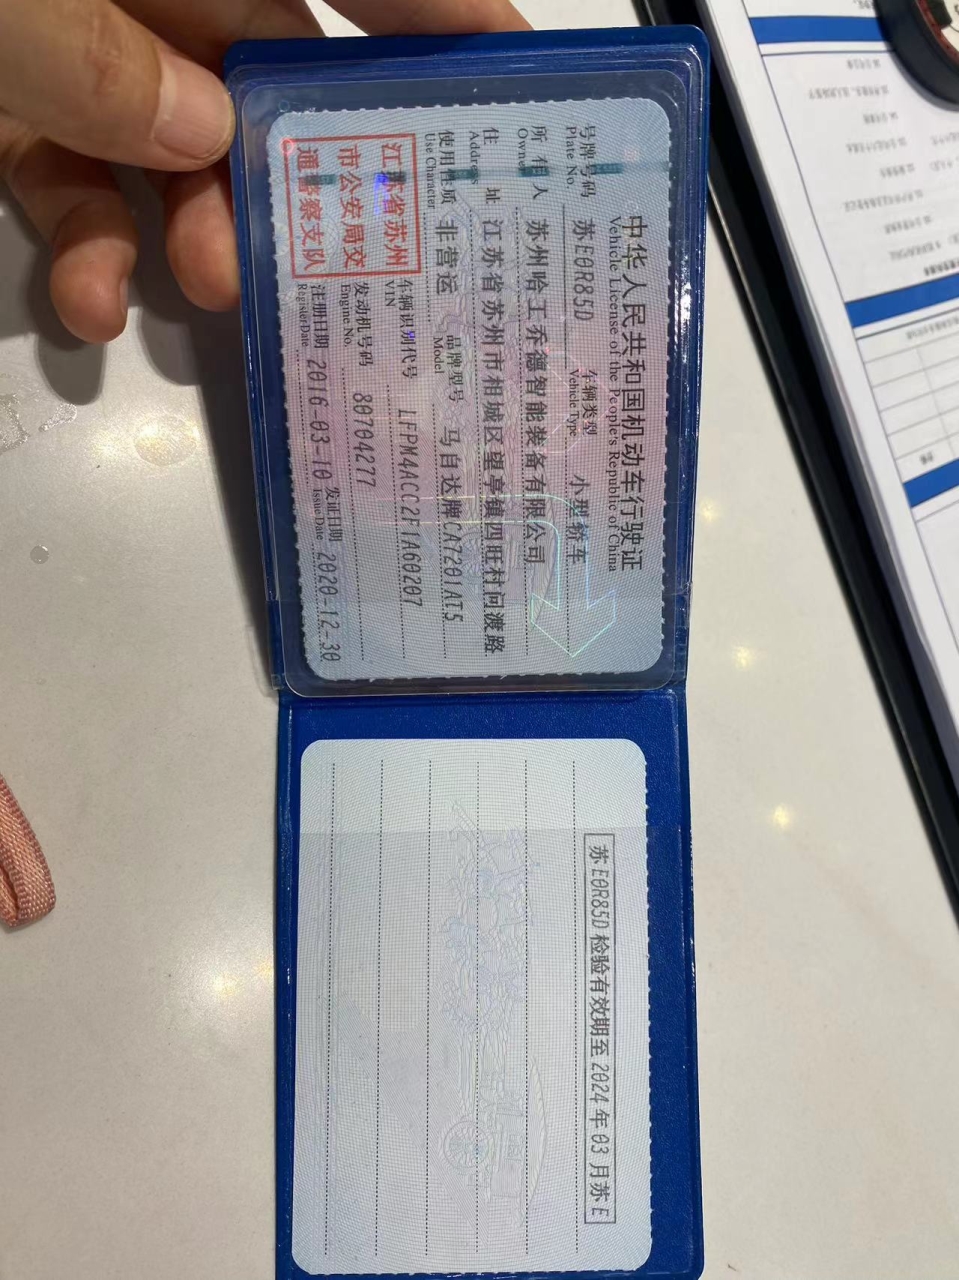 中华人民共和国机动车行驶证
Vehicle License of the People's Republic of China
号牌号码 苏E0R85D 车辆类型 小型轿车
Plate No. Vehicle Type
所有人 苏州哈工乔德智能装备有限公司
Owner
住址 江苏省苏州市相城区望亭镇四旺村问渡路
Address
使用性质 非营运 品牌型号 马自达牌CA7201AT5
Use Character Model
江苏省苏州
市公安局交
通警察支队
车辆识别代号 LFPM4ACC2F1A60207
VIN
发动机号码 80704277
Engine No.
注册日期 2016-03-10 发证日期 2020-12-30
Register Date Issue Date
苏E0R85D检验有效期至2024年03月苏E